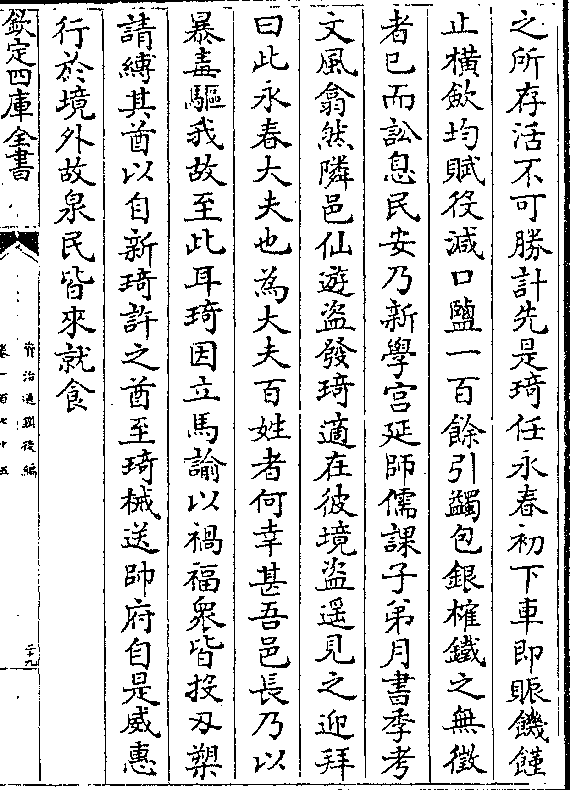 之所存活不可勝計先是琦任永春初下車即賑饑饉
止橫歛均賦役減口鹽一百餘引蠲包銀榷鐵之無徵
者已而訟息民安乃新學宫延師儒課子弟月書季考
文風翕然隣邑仙遊盜發琦適在彼境盜遥見之迎拜
曰此永春大夫也為大夫百姓者何幸甚吾邑長乃以
暴毒驅我故至此耳琦因立馬諭以禍福衆皆投刄槊
請縛其酋以自新琦許之酋至琦械送帥府自是威惠
行於境外故泉民皆來就食
欽定四庫全書
資治通鑑後編
卷一百七十五
二十九